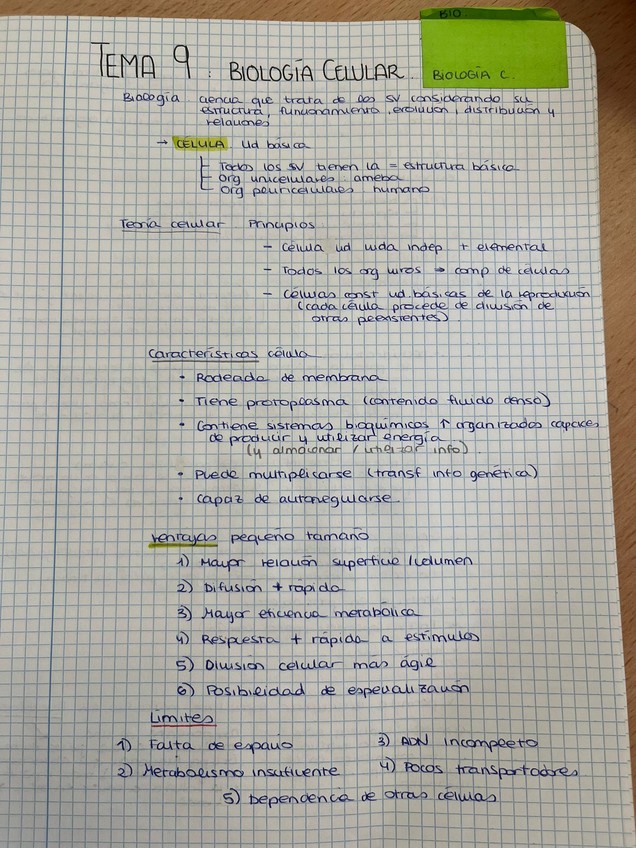 BIO.
BIOLOGÍA C.
TEMA 9 : BIOLOGÍA CELULAR.
Biología ciencia que trata de los SV considerando su
estructura, funcionamiento, evolución, distribución y
relaciones
→ CÉLULA Ud básica
Todos los SV tienen la = estructura básica
Org unicelulares: ameba
Org pluricelulares: humano
Teoría celular Principios
- Célula ud vida indep + elemental
- Todos los org vivos → comp de células
- Células const ud. básicas de la reproducción
(cada célula procede de división de
otras preexistentes).
Características célula
• Rodeada de membrana
• Tiene protoplasma (contenido fluido denso)
• Contiene sistemas bioquímicos ↑ organizados capaces
de producir y utilizar energía
(y almacenar / utilizar info)
• Puede multiplicarse (transf info genética)
• Capaz de autorregularse.
Ventajas pequeño tamaño
1) Mayor relación superficie / volumen
2) Difusión + rápida
3) Mayor eficiencia metabólica
4) Respuesta + rápida a estímulos
5) División celular más ágil
6) Posibilidad de especialización
Límites
1) Falta de espacio 3) ADN incompleto
2) Metabolismo insuficiente 4) Pocos transportadores
5) Dependencia de otras células